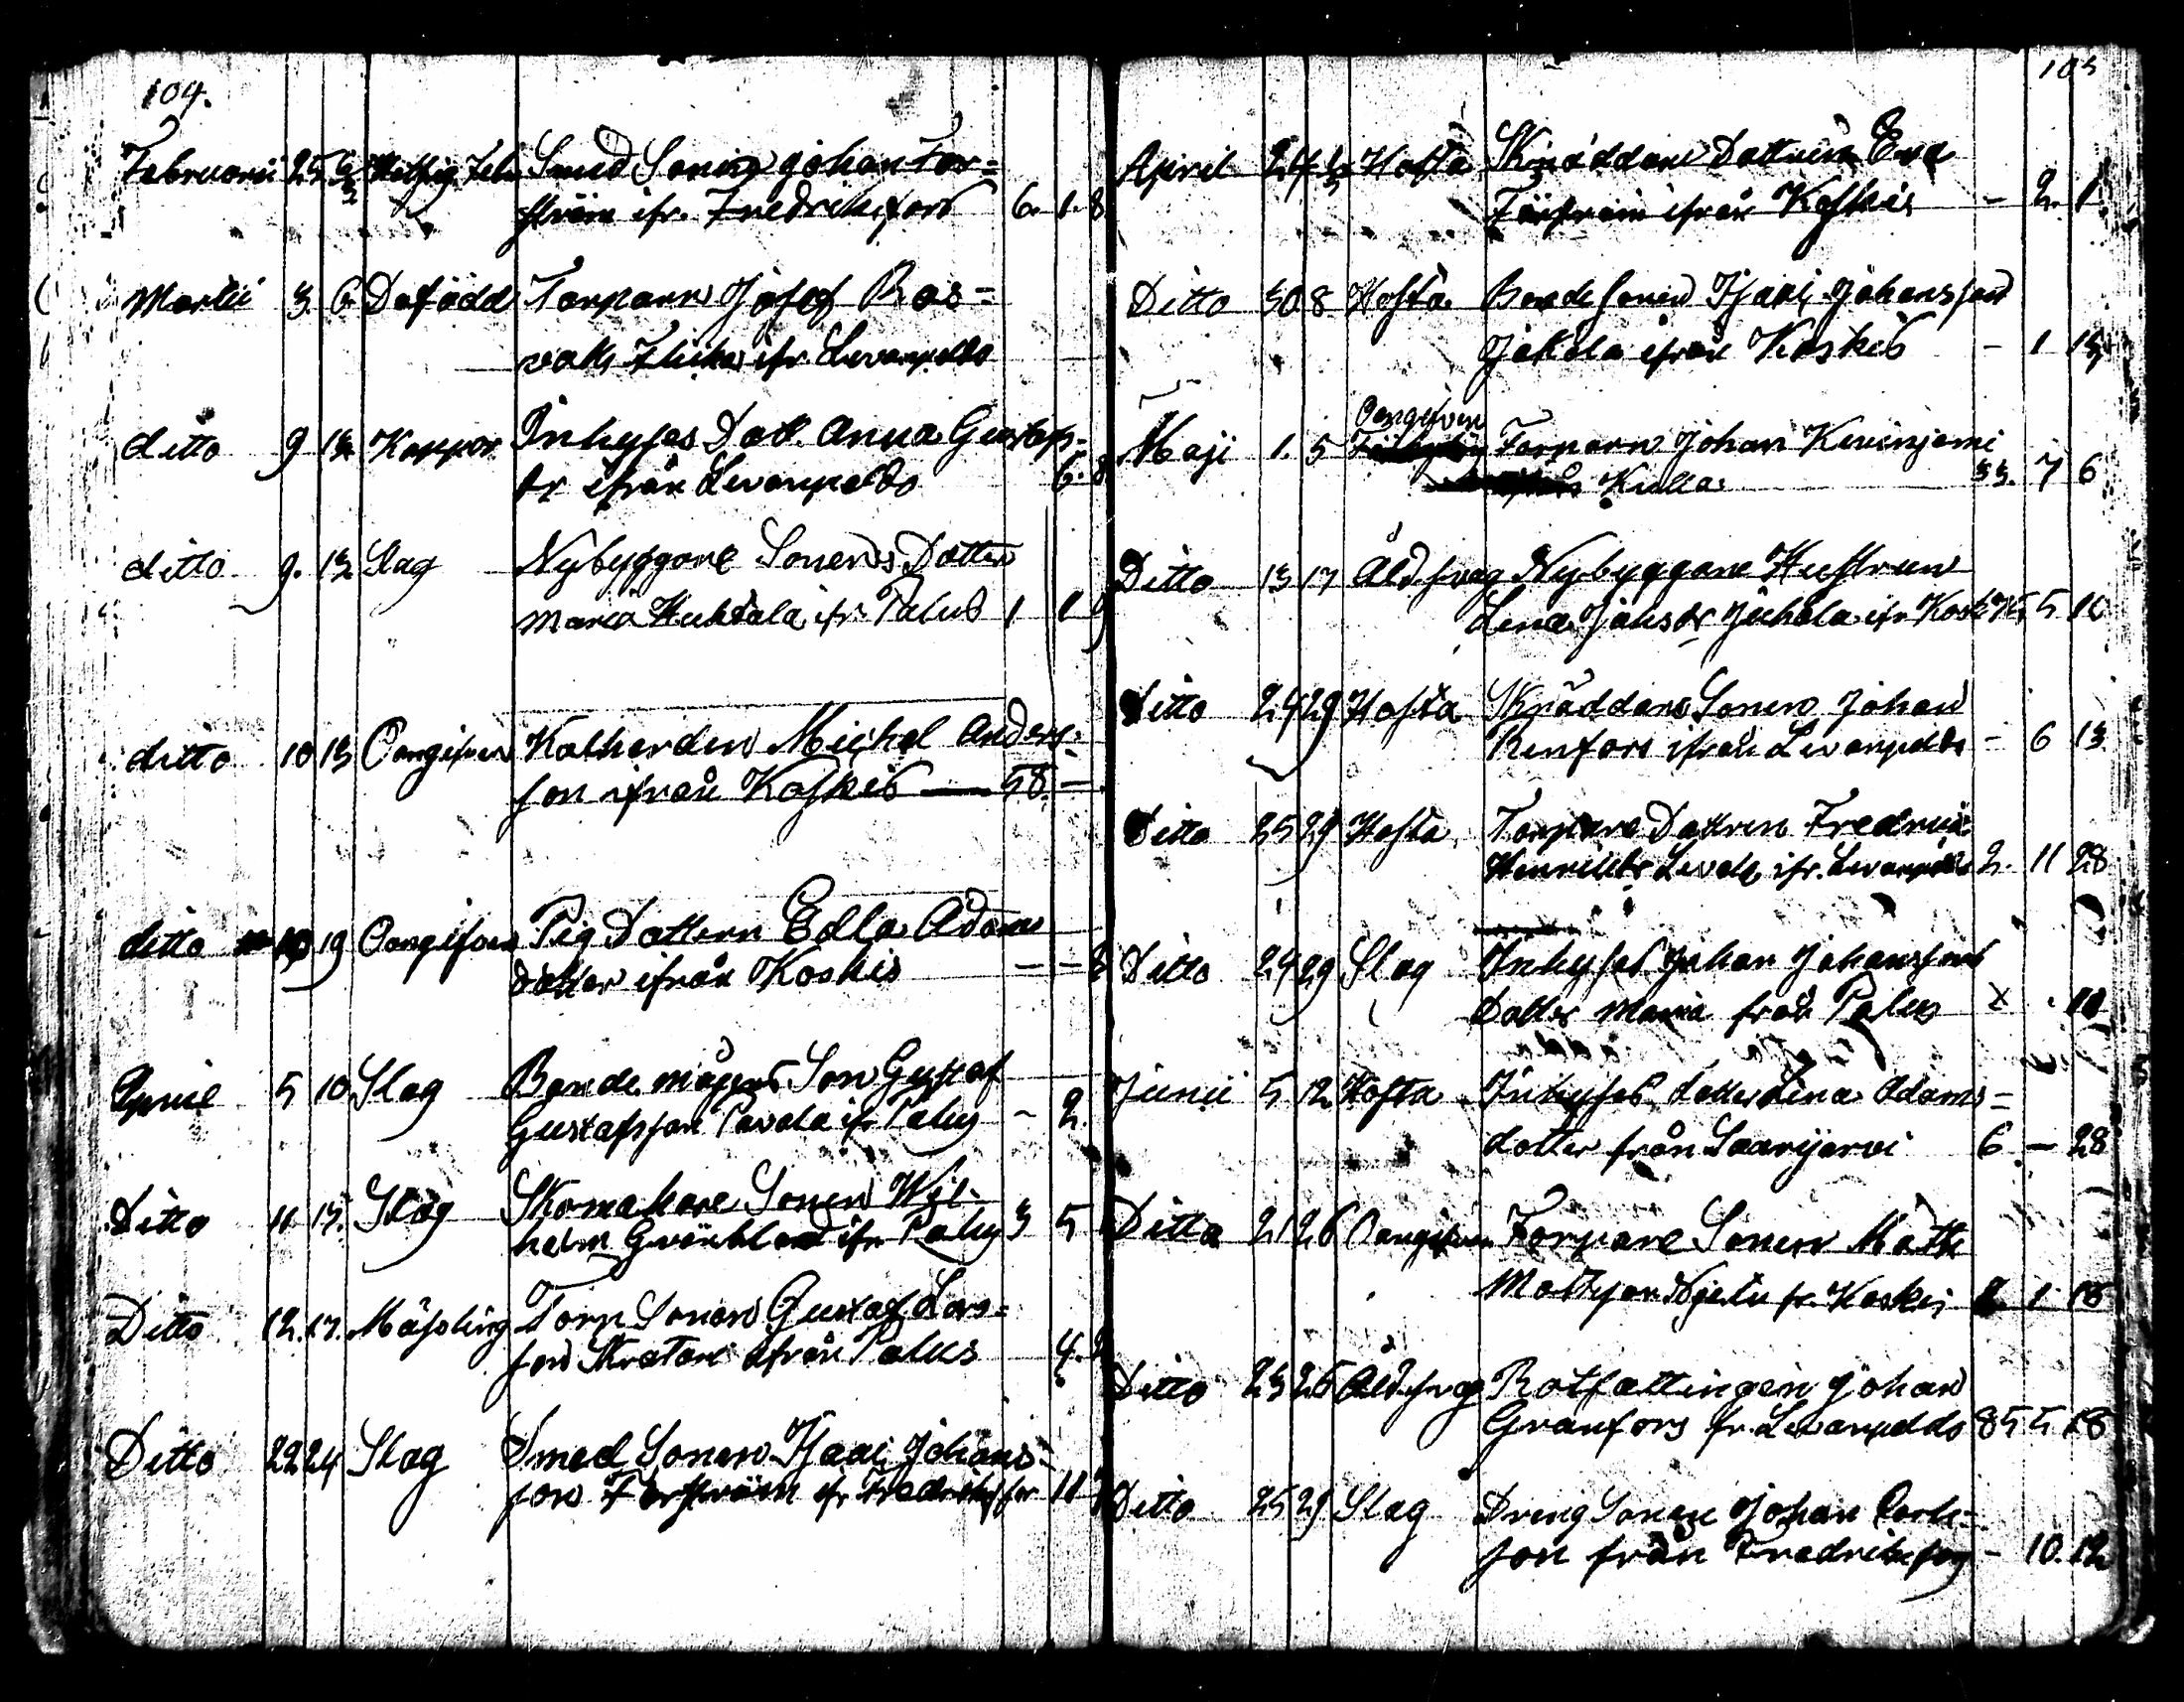 104.
Februarii 25 6/3 Hettsig Feber Smed Sonen Johan För=
ström ifr. Fredriksfors 6. 1. 8
Martii 3 6 Dödfödd Torparn Josef Ras=
vals Flicka ifr. Levanpelto
ditto 9 13 Koppor Inhyses Dott. Anna Gustafs-
dr ifrån Levanpelto 6. 8
ditto 9. 13 Slag Nybyggare Sonens Dotter
Maria Huhtala ifr. Palus 1 1 9
ditto 10 13 Oangifven Kolkarden Michel Anders-
son ifrån Koskis — 58. —
ditto 10 19 Oangifven Pig Dottern Edla Adams
dotter ifrån Koskis — — 8
April 5 10 Slag Bonde mågens Son Gustaf
Gustafsson Pavola ifr Palus - 2.
Ditto 11 15. Slag Skomakare Sonen Wil-
helm Grönblad ifr Palus 3 5
Ditto 12. 17. Mässling Torp Sonen Gustaf Lars=
son Kratari ifrån Palus 4.
Ditto 22 24 Slag Smed Sonen Isaac Johans-
son Förström ifr Fredriksfor 11
105
April 24 Hosta Skräddare Dottren Eva
Förström ifrån Koskis — 2. 1
Ditto 30 8 Hosta Bonde Sonen Isak Johansson
Jokela ifrån Koskis — 1 13
Oangifven
Maji 1. 5 Torparn Johan Kivinjemi
Kulla 33. 7 6
Ditto 13 17 Åld. svag Nybyggare Hustrun
Lena Jaksdr Juhola ifr Kosk 5 10
Ditto 24 29 Hosta Skräddare Sonen Johan
Renfors ifrån Levanpelto - 6 13
Ditto 25 29 Hosta Torpare Dottren Fredrika
Henricsdr Levola ifr. Levanpelto 2. 11 28
Ditto 24 29 Slag Inhyses Johan Johanssons
Dotter Maria från Palus x . 10
Junii 5 12 Hosta Inhyses dotter Lina Adams=
dotter från Saarijärvi 6 — 28
Ditto 21 26 Oangifven Torpare Sonen Matts
Mattsson fr. Koskis 1 18
Ditto 23 26 Åld. svag Rotfattingen Johan
Granfors fr. Levanpelto 85 5 18
Ditto 25 29 Slag Dreng Sonen Johan Carls=
son från Fredriksfors - 10. 12